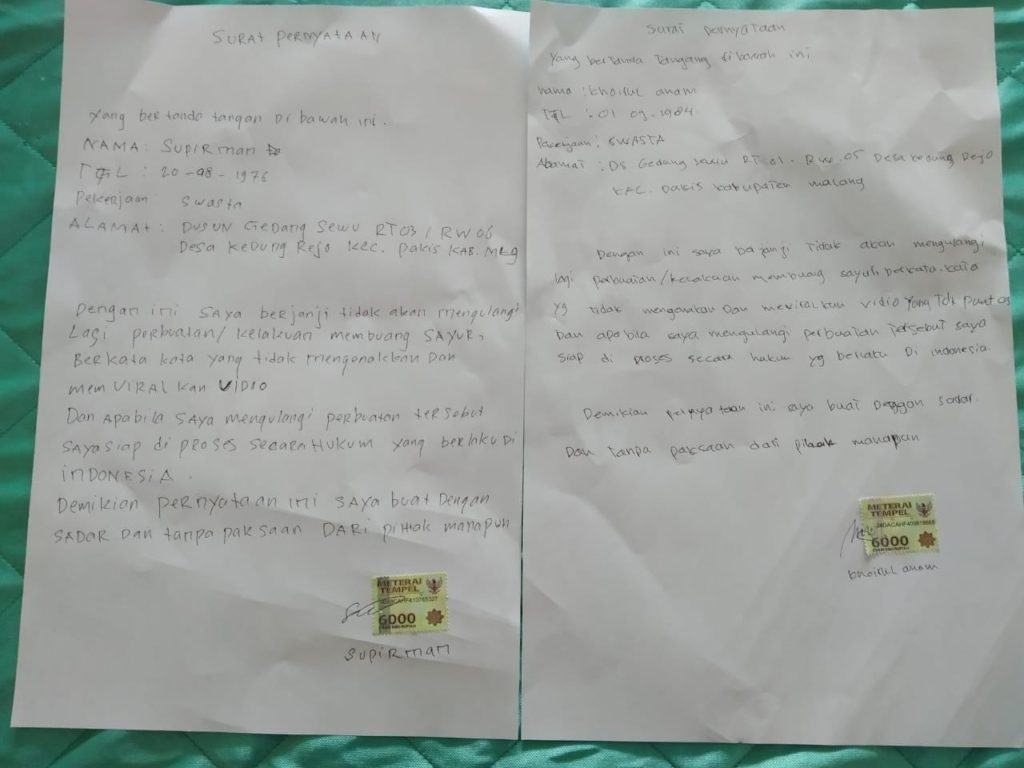 SURAT PERNYATAAN
Yang bertanda tangan Di bawah ini.
NAMA: SUPIRMAN
TGL : 20-08-1976
Pekerjaan: Swasta
ALAMAT: DUSUN GEDANG SEWU RT03/RW06
Desa Kedung Rejo KEC. Pakis KAB. MLG
Dengan ini SAYA berjanji tidak akan mengulangi
Lagi perbuatan/kelakuan membuang SAYUR,
Berkata kata yang tidak mengenakkan Dan
mem VIRAL kan VIDIO
Dan Apabila SAYA mengulangi perbuatan tersebut
SAYA SIAP di PROSES SECARA HUKUM yang berlaku Di
INDONESIA.
Demikian pernyataan ini SAYA buat Dengan
SADAR Dan tanpa paksaan DARI pihak manapun
METERAI
TEMPEL
6000
SUPIRMAN
Surat pernyataan
Yang bertanda tangang di bawah ini
nama : khoirul anam
TGL : 01 09-1984
Pekerjaan : SWASTA
Alamat : DS. Gedang sewu RT 01. RW.05 Desa kedung Rejo
KAC. Pakis kabupaten malang
Dengan ini saya berjanji Tidak akan mengulangi
lagi perbuatan/kecakuan membuang sayuh berkata-kata
yg tidak mengenakan Dan meviralkan vidio yang tdk pantas
Dan apabila saya mengulangi perbuatan Tersebut saya
siap di proses secara hukum yg berlaku Di indonesia.
Demikian pernyataan ini saya buat Denggan sadar.
Dan tanpa paksaan dari pihak manapun
METERAI
TEMPEL
6000
khoirul anam